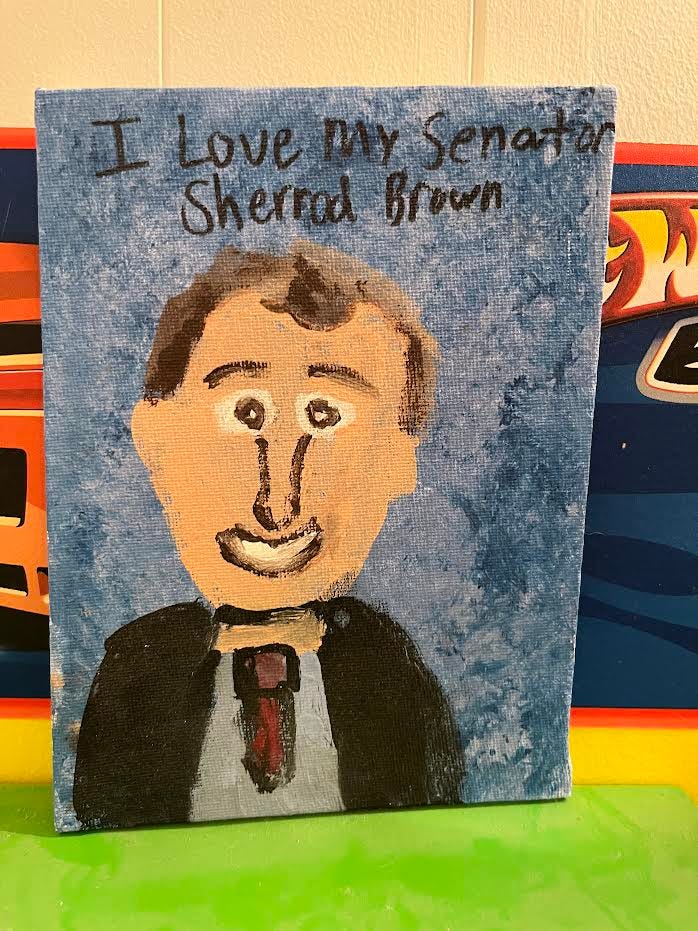 I Love My Senator
Sherrod Brown